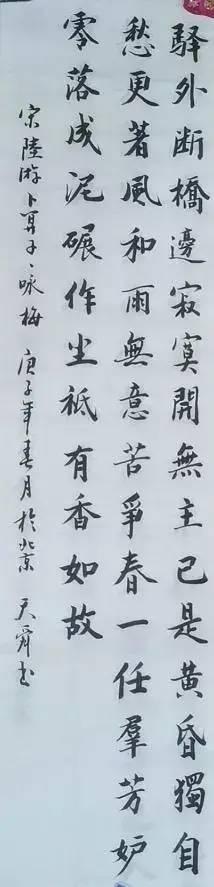 驿外断橋邊寂寞開無主已是黄昏獨自
愁更著風和雨無意苦爭春一任羣芳妒
零落成泥碾作尘衹有香如故
宋陸游卜算子咏梅 庚子年春月於北京 天舜书